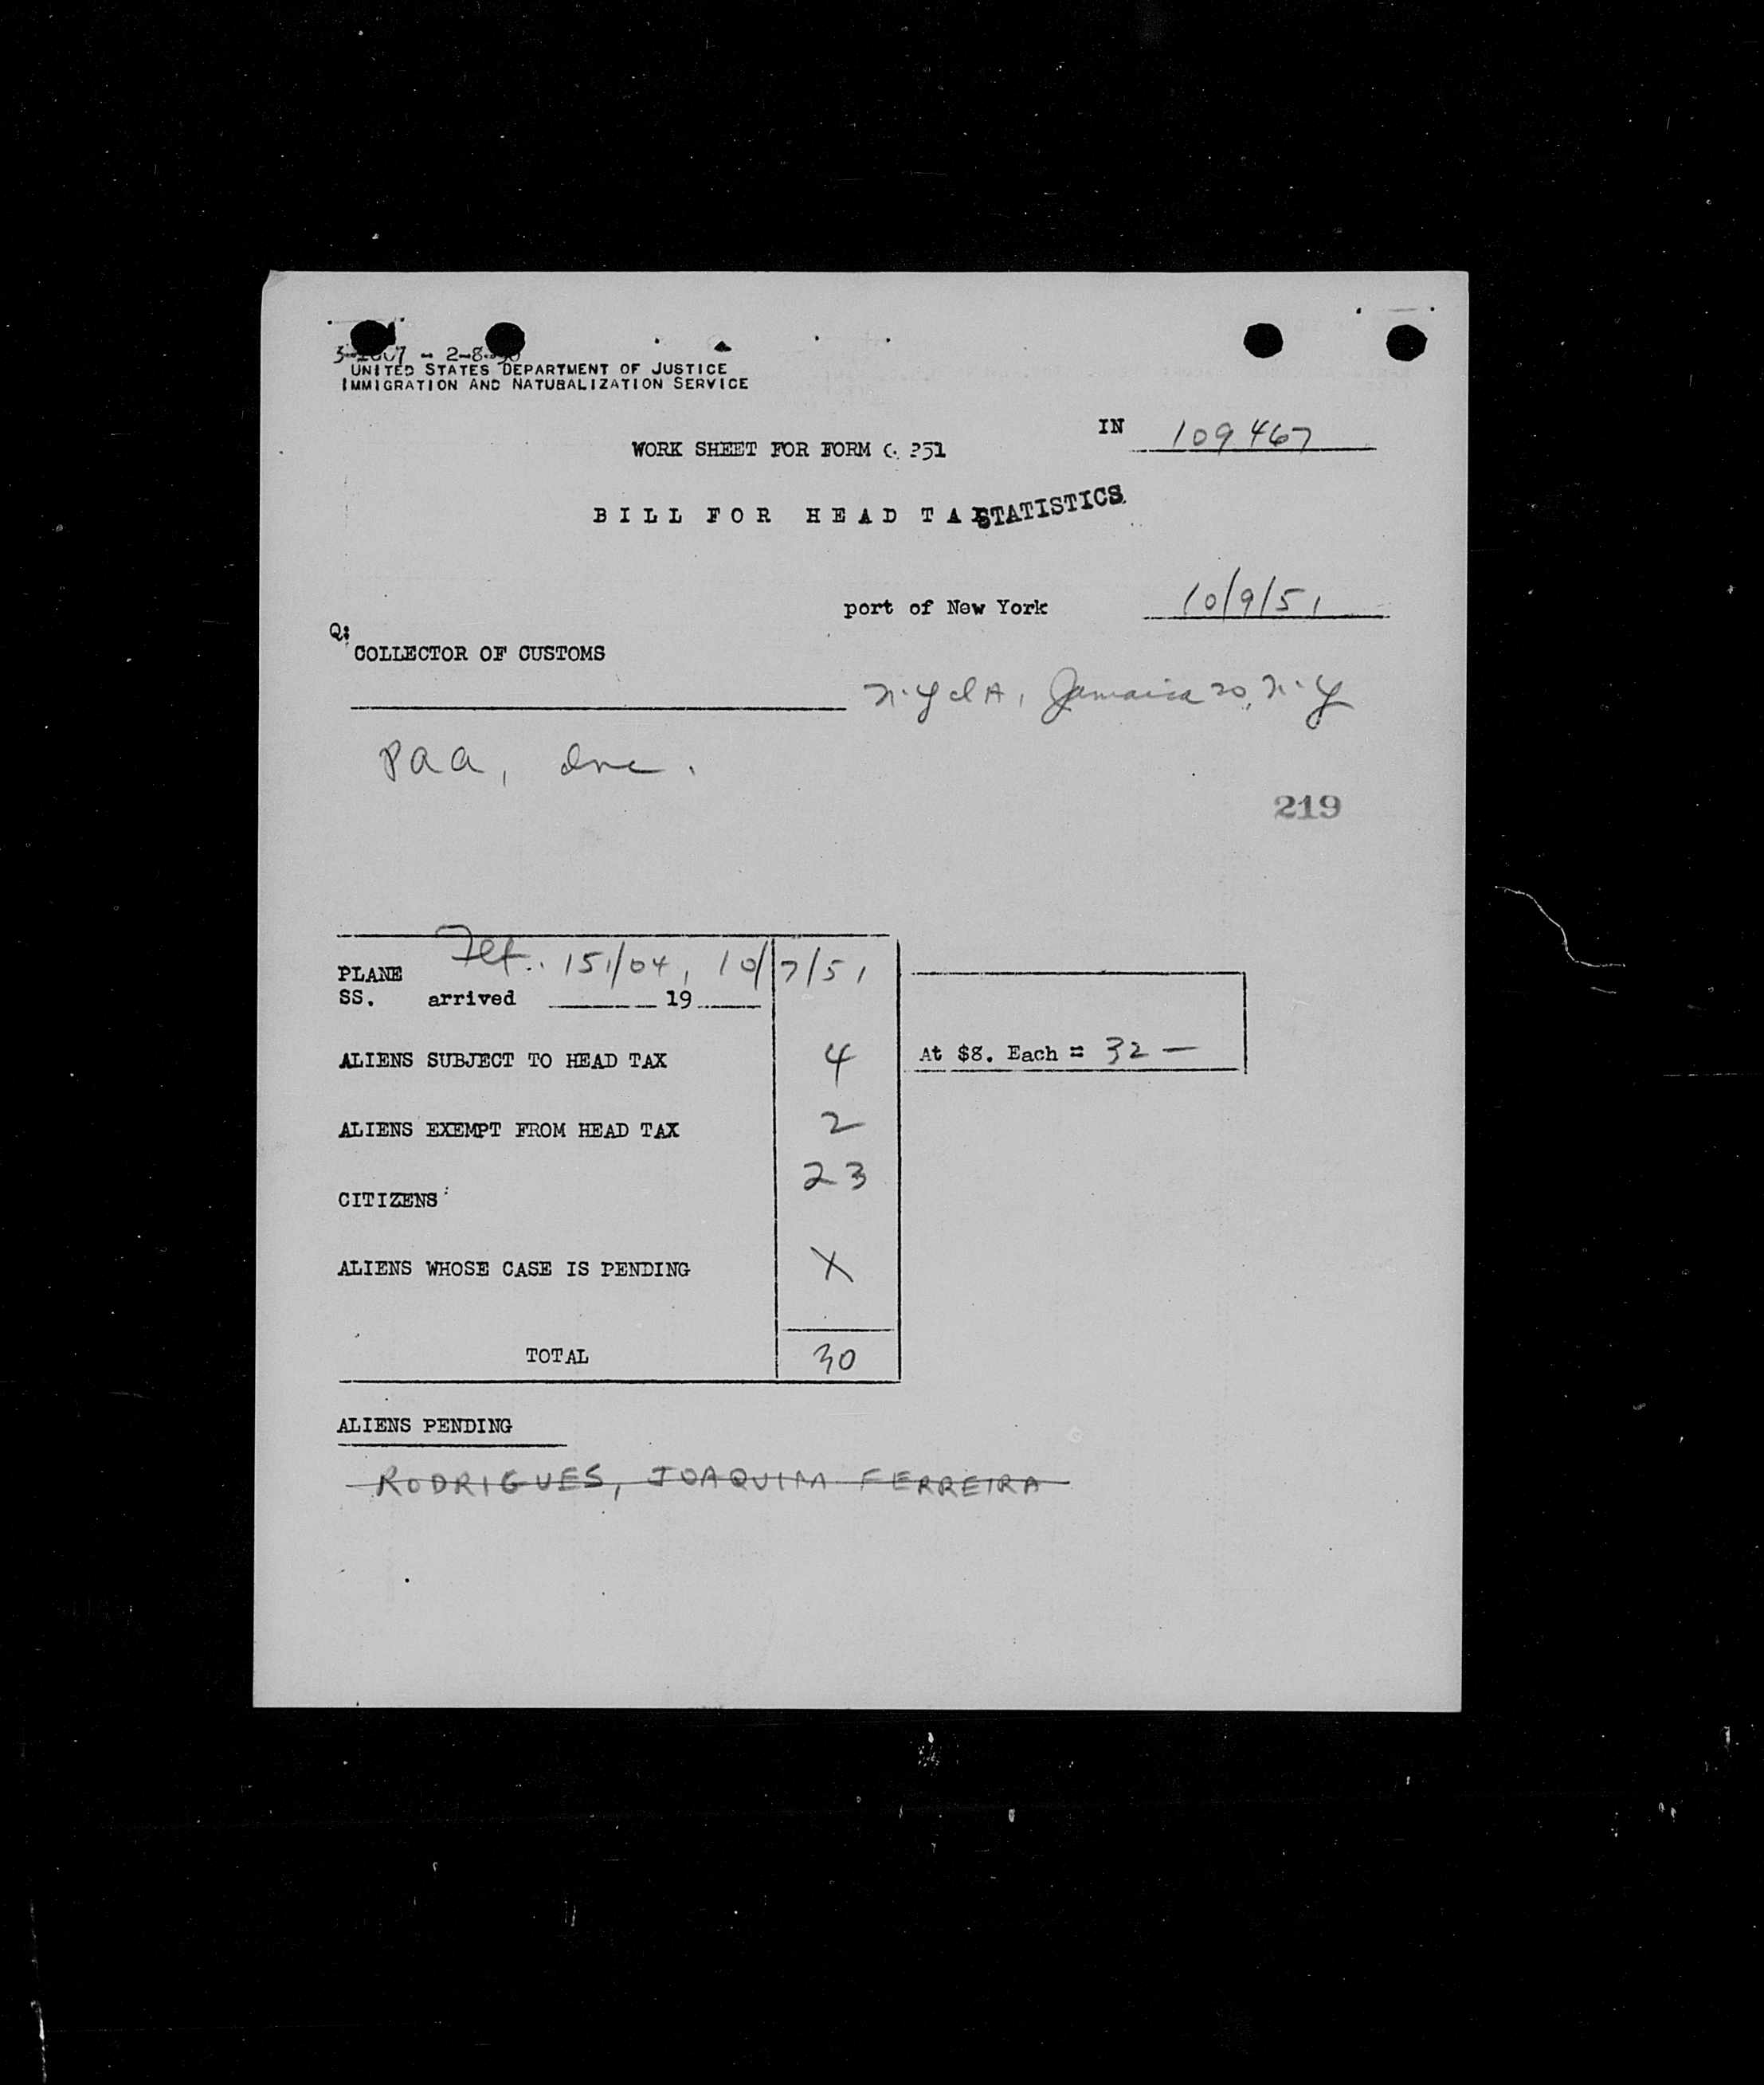 UNITED STATES DEPARTMENT OF JUSTICE
IMMIGRATION AND NATURALIZATION SERVICE
IN 109467
WORK SHEET FOR FORM
BILL FOR HEAD TAX STATISTICS
port of New York 10/9/51
Q:
COLLECTOR OF CUSTOMS
N.Y.I.A, Jamaica 20, N.Y
PAA, Inc.
219
Flt. 151/04, 10/7/51
PLANE
SS. arrived 19
ALIENS SUBJECT TO HEAD TAX 4 At $8. Each = 32 —
ALIENS EXEMPT FROM HEAD TAX 2
CITIZENS 23
ALIENS WHOSE CASE IS PENDING X
TOTAL 30
ALIENS PENDING
RODRIGUES, JOAQUIM FERREIRA